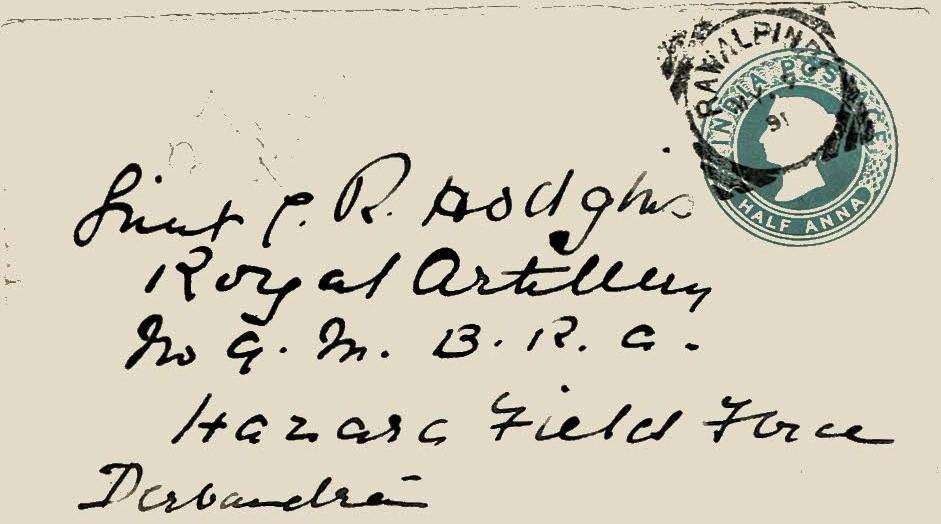 RAWALPIND
MY. 5
91
INDIA POSTAGE
HALF ANNA
Lieut C. R. Hodgins
Royal Artillery
No 9. M. B. R. A.
Hazara Field Force